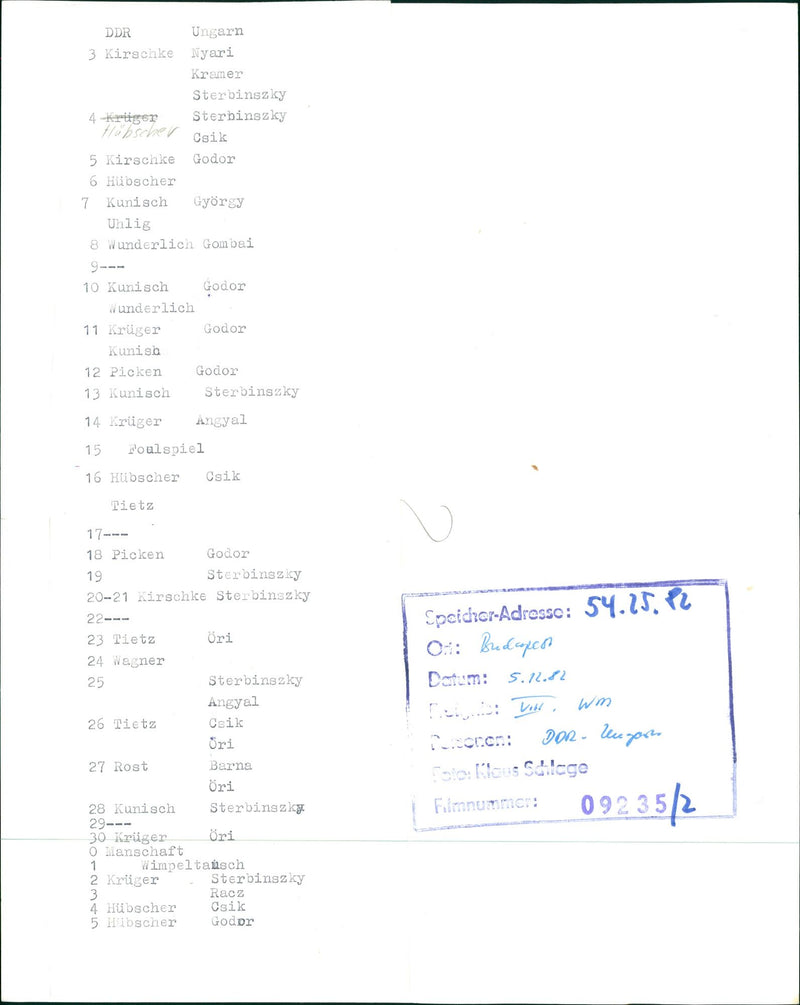 DDR Ungarn
3 Kirschke Nyari
Kramer
Sterbinszky
4 Krüger Sterbinszky
Hübscher
Csik
5 Kirschke Godor
6 Hübscher
7 Kunisch György
Uhlig
8 Wunderlich Gombai
9---
10 Kunisch Godor
Wunderlich
11 Krüger Godor
Kunish
12 Picken Godor
13 Kunisch Sterbinszky
14 Krüger Angyal
15 Foulspiel
16 Hübscher Csik
Tietz
17---
18 Picken Godor
19 Sterbinszky
20-21 Kirschke Sterbinszky
22---
23 Tietz Öri
24 Wagner
25 Sterbinszky
Angyal
26 Tietz Csik
Öri
27 Rost Barna
Öri
28 Kunisch Sterbinszky
29---
30 Krüger Öri
0 Manschaft
1 Wimpeltausch
2 Krüger Sterbinszky
3 Racz
4 Hübscher Csik
5 Hübscher Godor
Speicher-Adresse: 54.25.82
Ort: Budapest
Datum: 5.12.82
Ereignis: VIII. WM
Personen: DDR - Ungarn
Foto: Klaus Schlage
Filmnummer: 09235/2